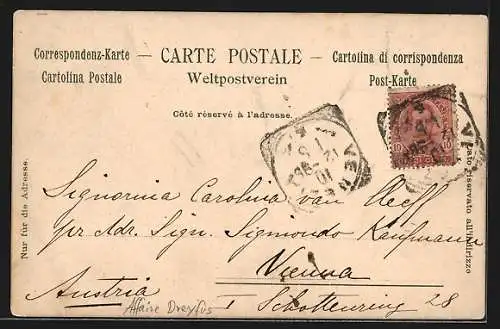 Correspondenz-Karte — CARTE POSTALE — Cartolina di corrispondenza
Cartolina Postale Weltpostverein Post-Karte
Côté réservé à l'adresse.
Nur für die Adresse.
Lato riservato all'indirizzo
10 10
VE
Signorina Carolina van Aeff
pr Adr. Sign. Sigmondo Kaufmann
Vienna
Austria Schottenring 28
Affaire Dreyfus